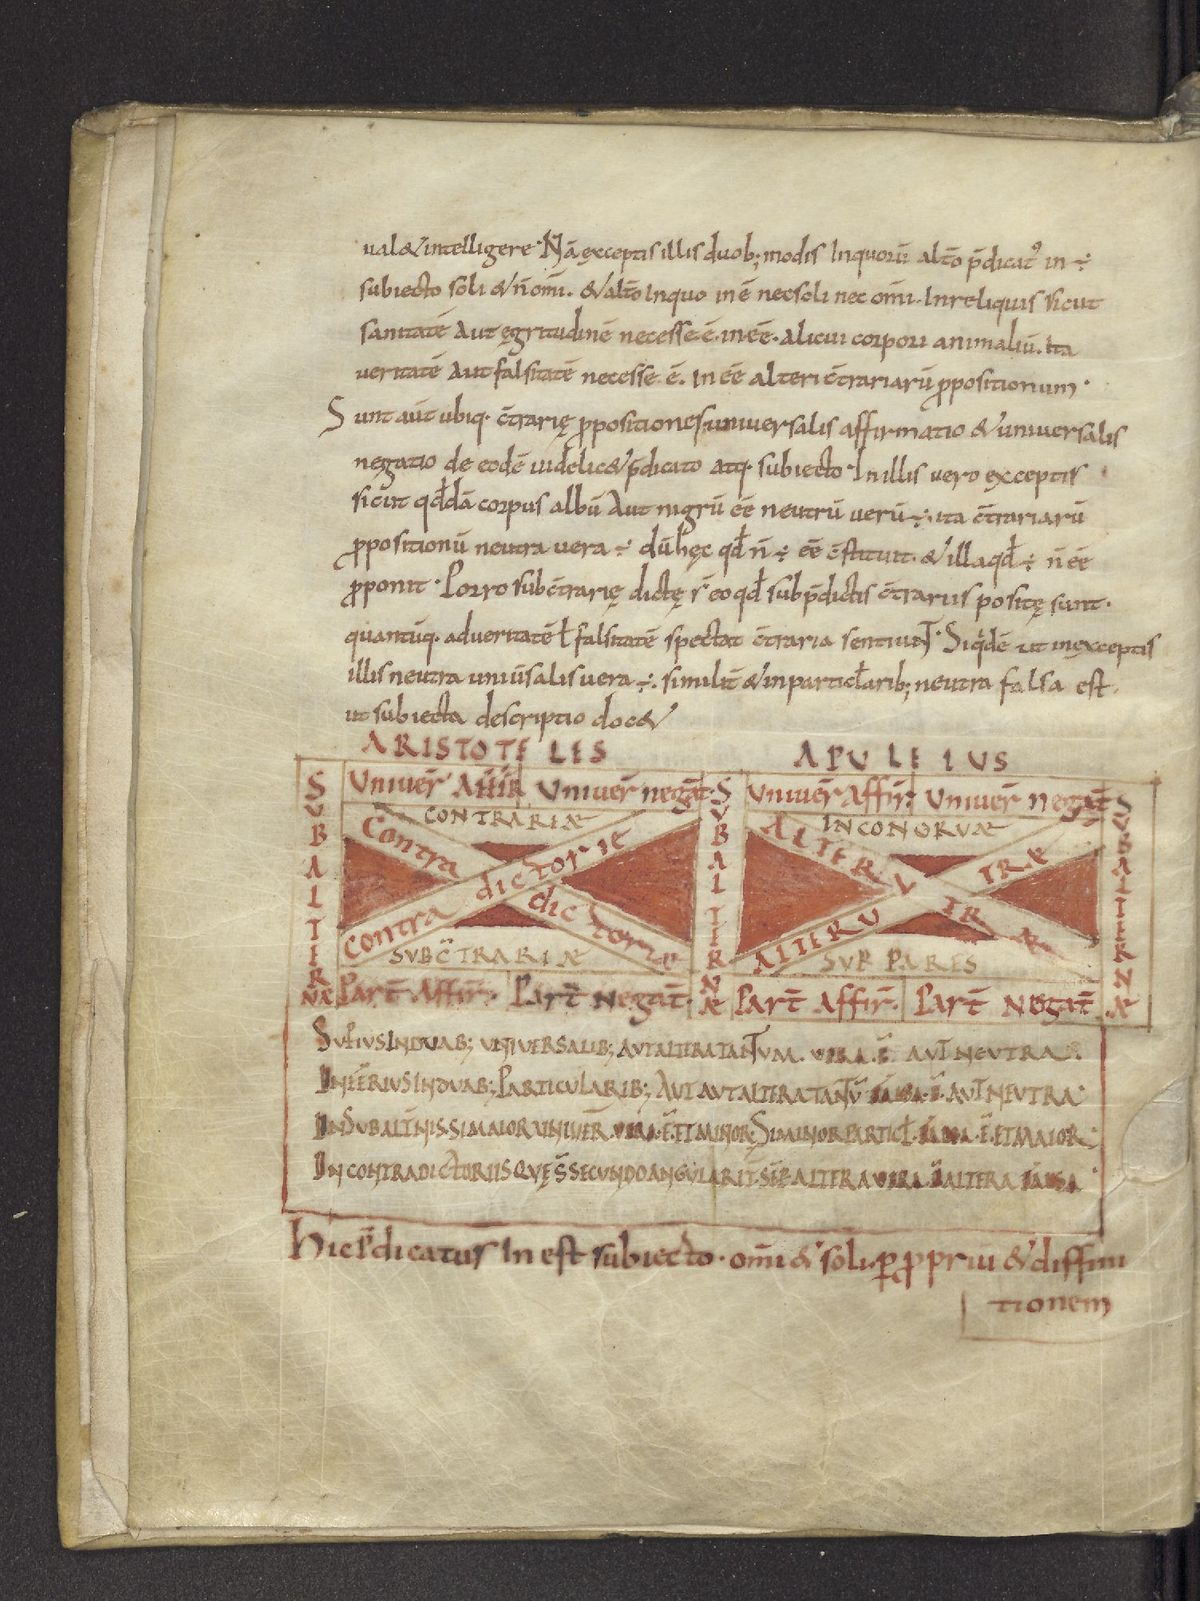 ual& intelligere. Nā exceptis illis duob; modis Inquorū altō p̄dicat᷒ in ÷
subiecto soli & n̄ om̄i. & altō Inquo inē nec soli nec om̄i. In reliquis sicut
sanitatē Aut ęgritudinē necesse ē. in eē. alicui corpori animaliū. Ita
ueritatē Aut falsitatē necesse. ē. In eē alteri c̄trariarū ꝓpositionum.
Sunt aūt ubiq. c̄trarię ꝓpositiones. uniuersalis affirmatio & uniuersalis
negatio de eodē uidelic& p̄dicato atq. subiecto. In illis uero exceptis
sicut qđdā corpus albū Aut nigrū eē neutrū uerū ÷. ita c̄trariarū
ꝓpositionū neutra uera ÷ dū hęc qđ n̄ ÷ eē c̄stituit. & illa qđ ÷ n̄ eē
ꝓponit. Porro subc̄trarię dictę s̄ eo qđ sub p̄dictis c̄trariis positę sunt.
quantūq. ad ueritatē ł falsitatē spectat c̄traria sentiunt. Siqdē ut in exceptis
illis neutra uniū̄salis uera ÷. similit̄ & in particłarib; neutra falsa est.
ut subiecta descriptio doc&
ARISTOTELES APULEIUS
Uniuer̄ Affir̄ Uniuer̄ negat̄. Uniuer̄ Affir̄. Uniuer̄ negat̄
SUBALTERNÆ SUBALTERNÆ SUBALTERNÆ
CONTRARIÆ INCONGRUÆ
Contra dictorie ALTERUTRÆ
Contra dictorie ALTERUTRÆ
SUBC̄TRARIÆ SUPPARES
Part̄ Affir̄. Part̄ Negat̄. Part̄ Affir̄. Part̄ Negat̄.
SUPERIUS IN DUAB; UNIVERSALIB; AUT ALTERA TANTUM. VERA. Ē AUT NEUTRA.
INFERIUS IN DUAB; PARTICULARIB; AUT AUT ALTERA TANTŪ FALSA. Ē. AUT NEUTRA.
IN DUB ALTNIS. SI MAIOR UNIUER̄. VERA. Ē. ET MINOR. SI MINOR PARTICŁ. FALSA. Ē. ET MAIOR.
IN CONTRADICTORIIS QUĘ S̄ SECUNDO ANGULARIT̄. SĒP ALTERA VERA. Ē ALTERA FALSA
Hic p̄dicatus In est subiecto. om̄i & soli. ꝑ ꝓpriū & diffini
tionem